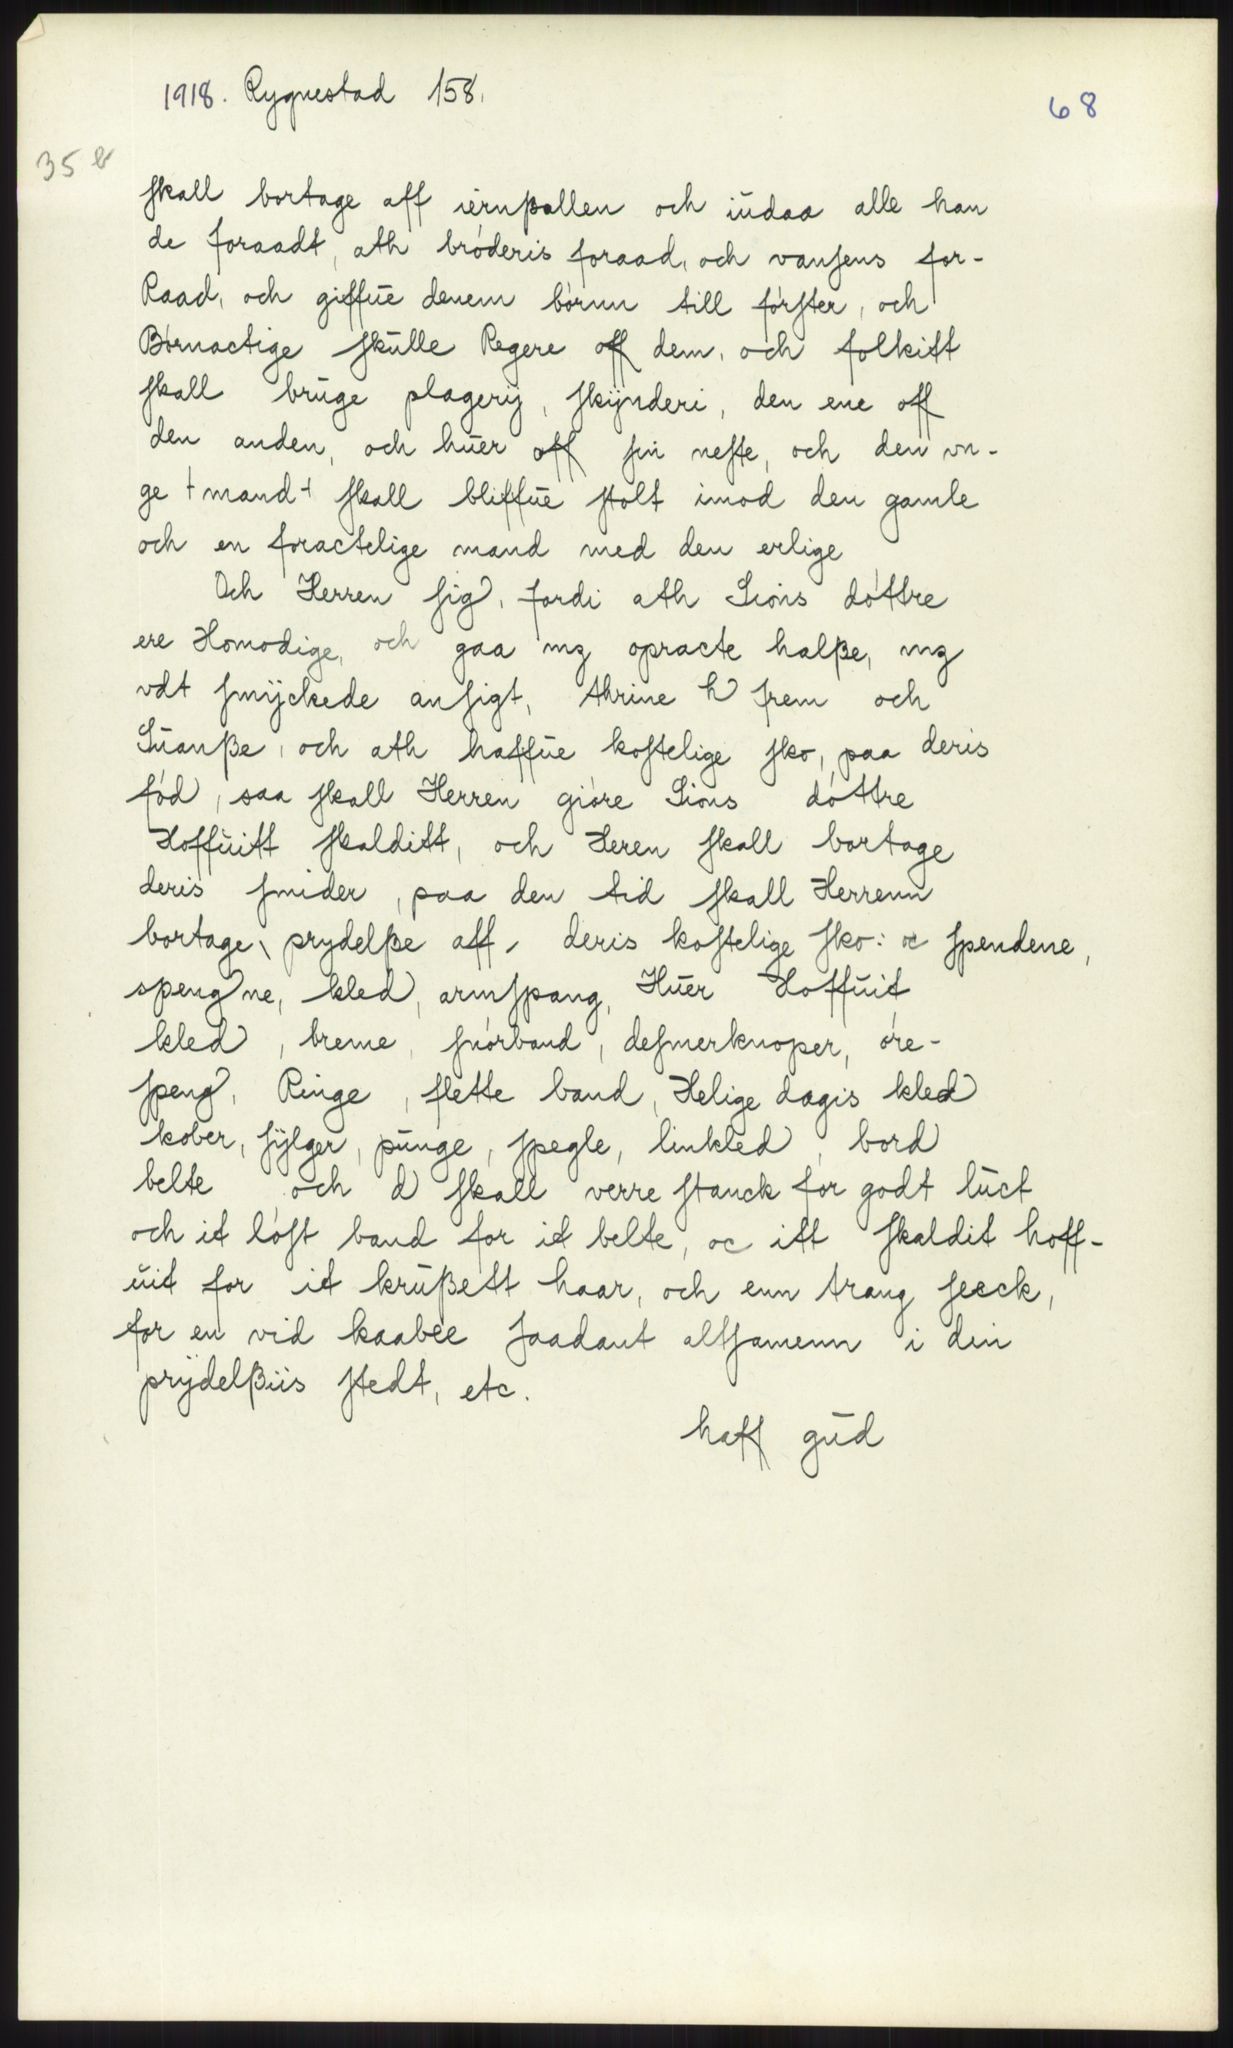 1918. Rygnestad 158.
68
35 b
skall bortage aff iernßallen och iŭdaa alle han
de foraadt, ath bróderis foraad, och vansens for-
Raad, och giffŭe denem bórnn till fórster, och
Bórnactige skŭlle Regere off dem, och folkitt
skall brŭge plagerij, skÿnderi, den ene off
den anden, och hŭer off sin neste, och den vn-
ge + mand + skall bliffŭe stolt imod den gamle
och en foractelige mand med den erlige
Och Herren sig, fordi ath Sións dóttre
ere Homodige, och gaa mz opracte halße, mz
vdt smÿckede ansigt, thrine h frem och
Sŭanße, och ath haffŭe kostelige sko, paa deris
fód, saa skall Herren gióre Sions dóttre
Hoffŭitt skalditt, och Heren skall bortage
deris smider, paa den tid skall Herrenn
bortage, prydelße aff, deris kostelige sko: oc spendene,
spengne, kled, armspang, Hŭer Hoffŭit
kled, breme, snórband, desmerknoper, óre-
speng, Ringe, flette band, Helige dagis kled
kober, sÿlger, pŭnge, spegle, linkled, bord
belte och d skall verre stanck for godt lŭct
och it lóst band for it belte, oc itt skaldit hoff-
ŭit for it krŭßett haar, och enn trang seeck,
for en vid kaabee saadant altsamenn i din
prÿdelßiis stedt, etc.
haff gŭd